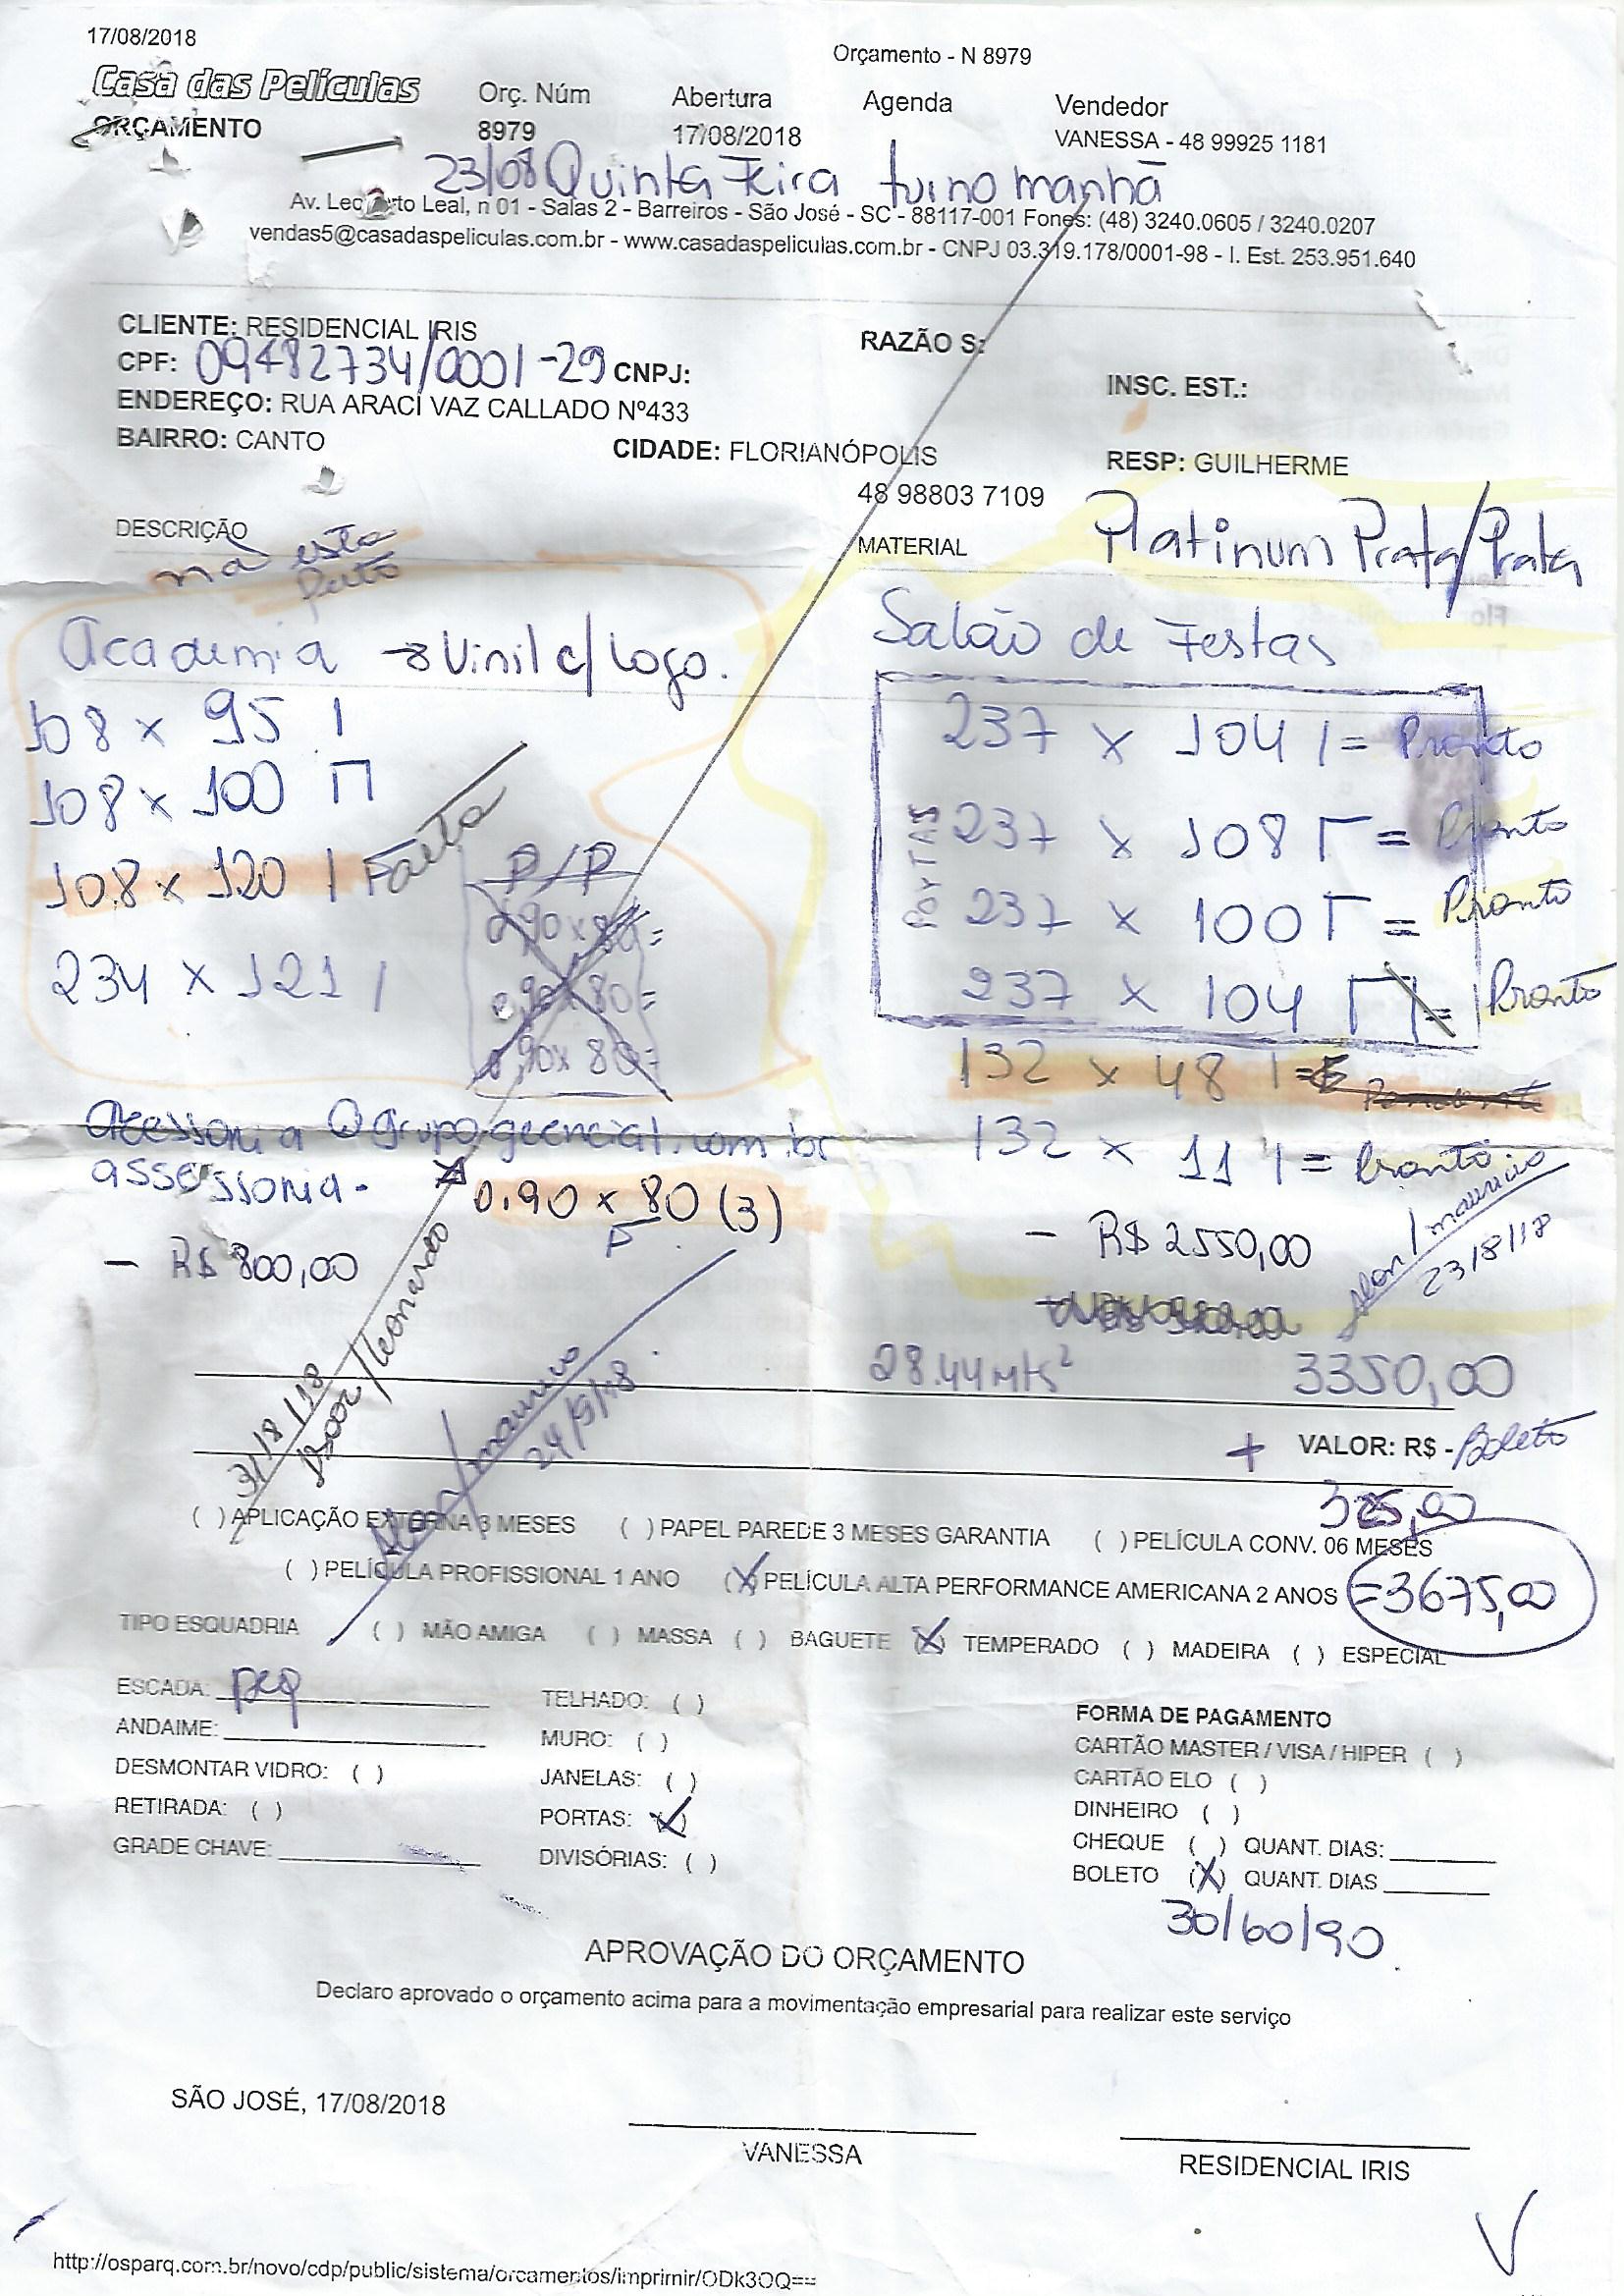 17/08/2018
Orçamento - N 8979
Casa das Películas
Orç. Núm Abertura Agenda Vendedor
ORÇAMENTO 8979 17/08/2018 VANESSA - 48 99925 1181
23/08 Quinta Feira turno manhã
Av. Leoberto Leal, n 01 - Salas 2 - Barreiros - São José - SC - 88117-001 Fones: (48) 3240.0605 / 3240.0207
vendas5@casadaspeliculas.com.br - www.casadaspeliculas.com.br - CNPJ 03.319.178/0001-98 - I. Est. 253.951.640
CLIENTE: RESIDENCIAL IRIS
RAZÃO S:
CPF: 09482734/0001-29 CNPJ:
INSC. EST.:
ENDEREÇO: RUA ARACI VAZ CALLADO Nº433
BAIRRO: CANTO CIDADE: FLORIANÓPOLIS RESP: GUILHERME
48 98803 7109
DESCRIÇÃO
MATERIAL Platinum Prata/Prata
não esta
Academia → Vinil c/ Logo.
Salão de Festas
108 x 95 |
108 x 100 Π
108 x 120 | Falta
234 x 121 |
P/P
0,90 x 80 =
0,90 x 80 =
0,90 x 80 =
PORTAS
237 x 104 | = Pronto
237 x 108 Γ = Pronto
237 x 100 Γ = Pronto
237 x 104 Π = Pronto
132 x 48 | =
132 x 11 | = Pronto.
@grupogeencial.com.br
assessoria.
0.90 x 80 (3)
- R$ 800,00
- R$ 2550,00
/ mauricio
23/8/18
28.44 mts²
3350,00
31/8/18
/Leonardo
/mauricio
24/9/18
+ VALOR: R$ - Boleto
325,00
( ) APLICAÇÃO EXTERNA 3 MESES ( ) PAPEL PAREDE 3 MESES GARANTIA ( ) PELÍCULA CONV. 06 MESES
( ) PELÍCULA PROFISSIONAL 1 ANO (X) PELÍCULA ALTA PERFORMANCE AMERICANA 2 ANOS =3675,00
TIPO ESQUADRIA ( ) MÃO AMIGA ( ) MASSA ( ) BAGUETE (X) TEMPERADO ( ) MADEIRA ( ) ESPECIAL
ESCADA: peq
TELHADO: ( )
ANDAIME:
MURO: ( )
DESMONTAR VIDRO: ( )
JANELAS: ( )
RETIRADA: ( )
PORTAS: (X)
GRADE CHAVE:
DIVISÓRIAS: ( )
FORMA DE PAGAMENTO
CARTÃO MASTER / VISA / HIPER ( )
CARTÃO ELO ( )
DINHEIRO ( )
CHEQUE ( ) QUANT. DIAS:
BOLETO (X) QUANT. DIAS
30/60/90
APROVAÇÃO DO ORÇAMENTO
Declaro aprovado o orçamento acima para a movimentação empresarial para realizar este serviço
SÃO JOSÉ, 17/08/2018
VANESSA
RESIDENCIAL IRIS
http://osparq.com.br/novo/cdp/public/sistema/orcamentos/imprimir/ODk3OQ==